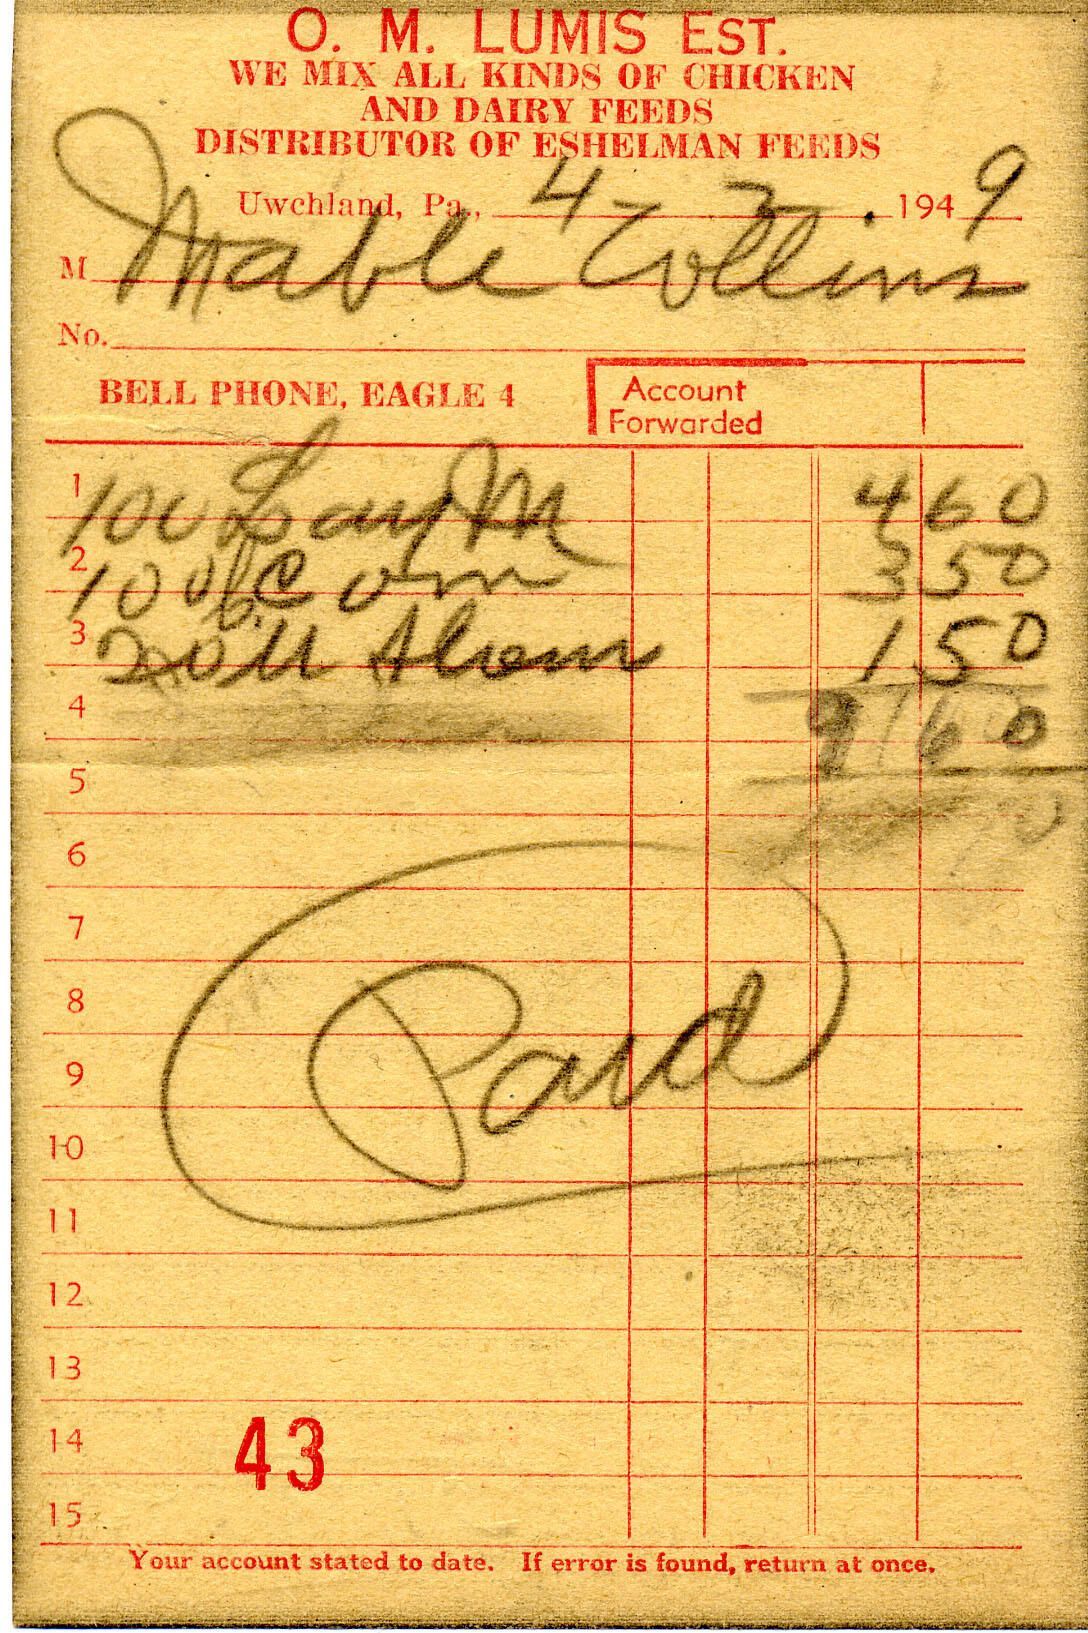 O. M. LUMIS EST.
WE MIX ALL KINDS OF CHICKEN
AND DAIRY FEEDS
DISTRIBUTOR OF ESHELMAN FEEDS
Uwchland, Pa., 4-7. 1949
M Mable Collins
No.
BELL PHONE, EAGLE 4 Account Forwarded
1 100 Lay M 4 60
2 100 lb. Corn 3 50
3 1 50
4 9 60
5
6
7
8 Paid
9
10
11
12
13
14 43
15
Your account stated to date. If error is found, return at once.